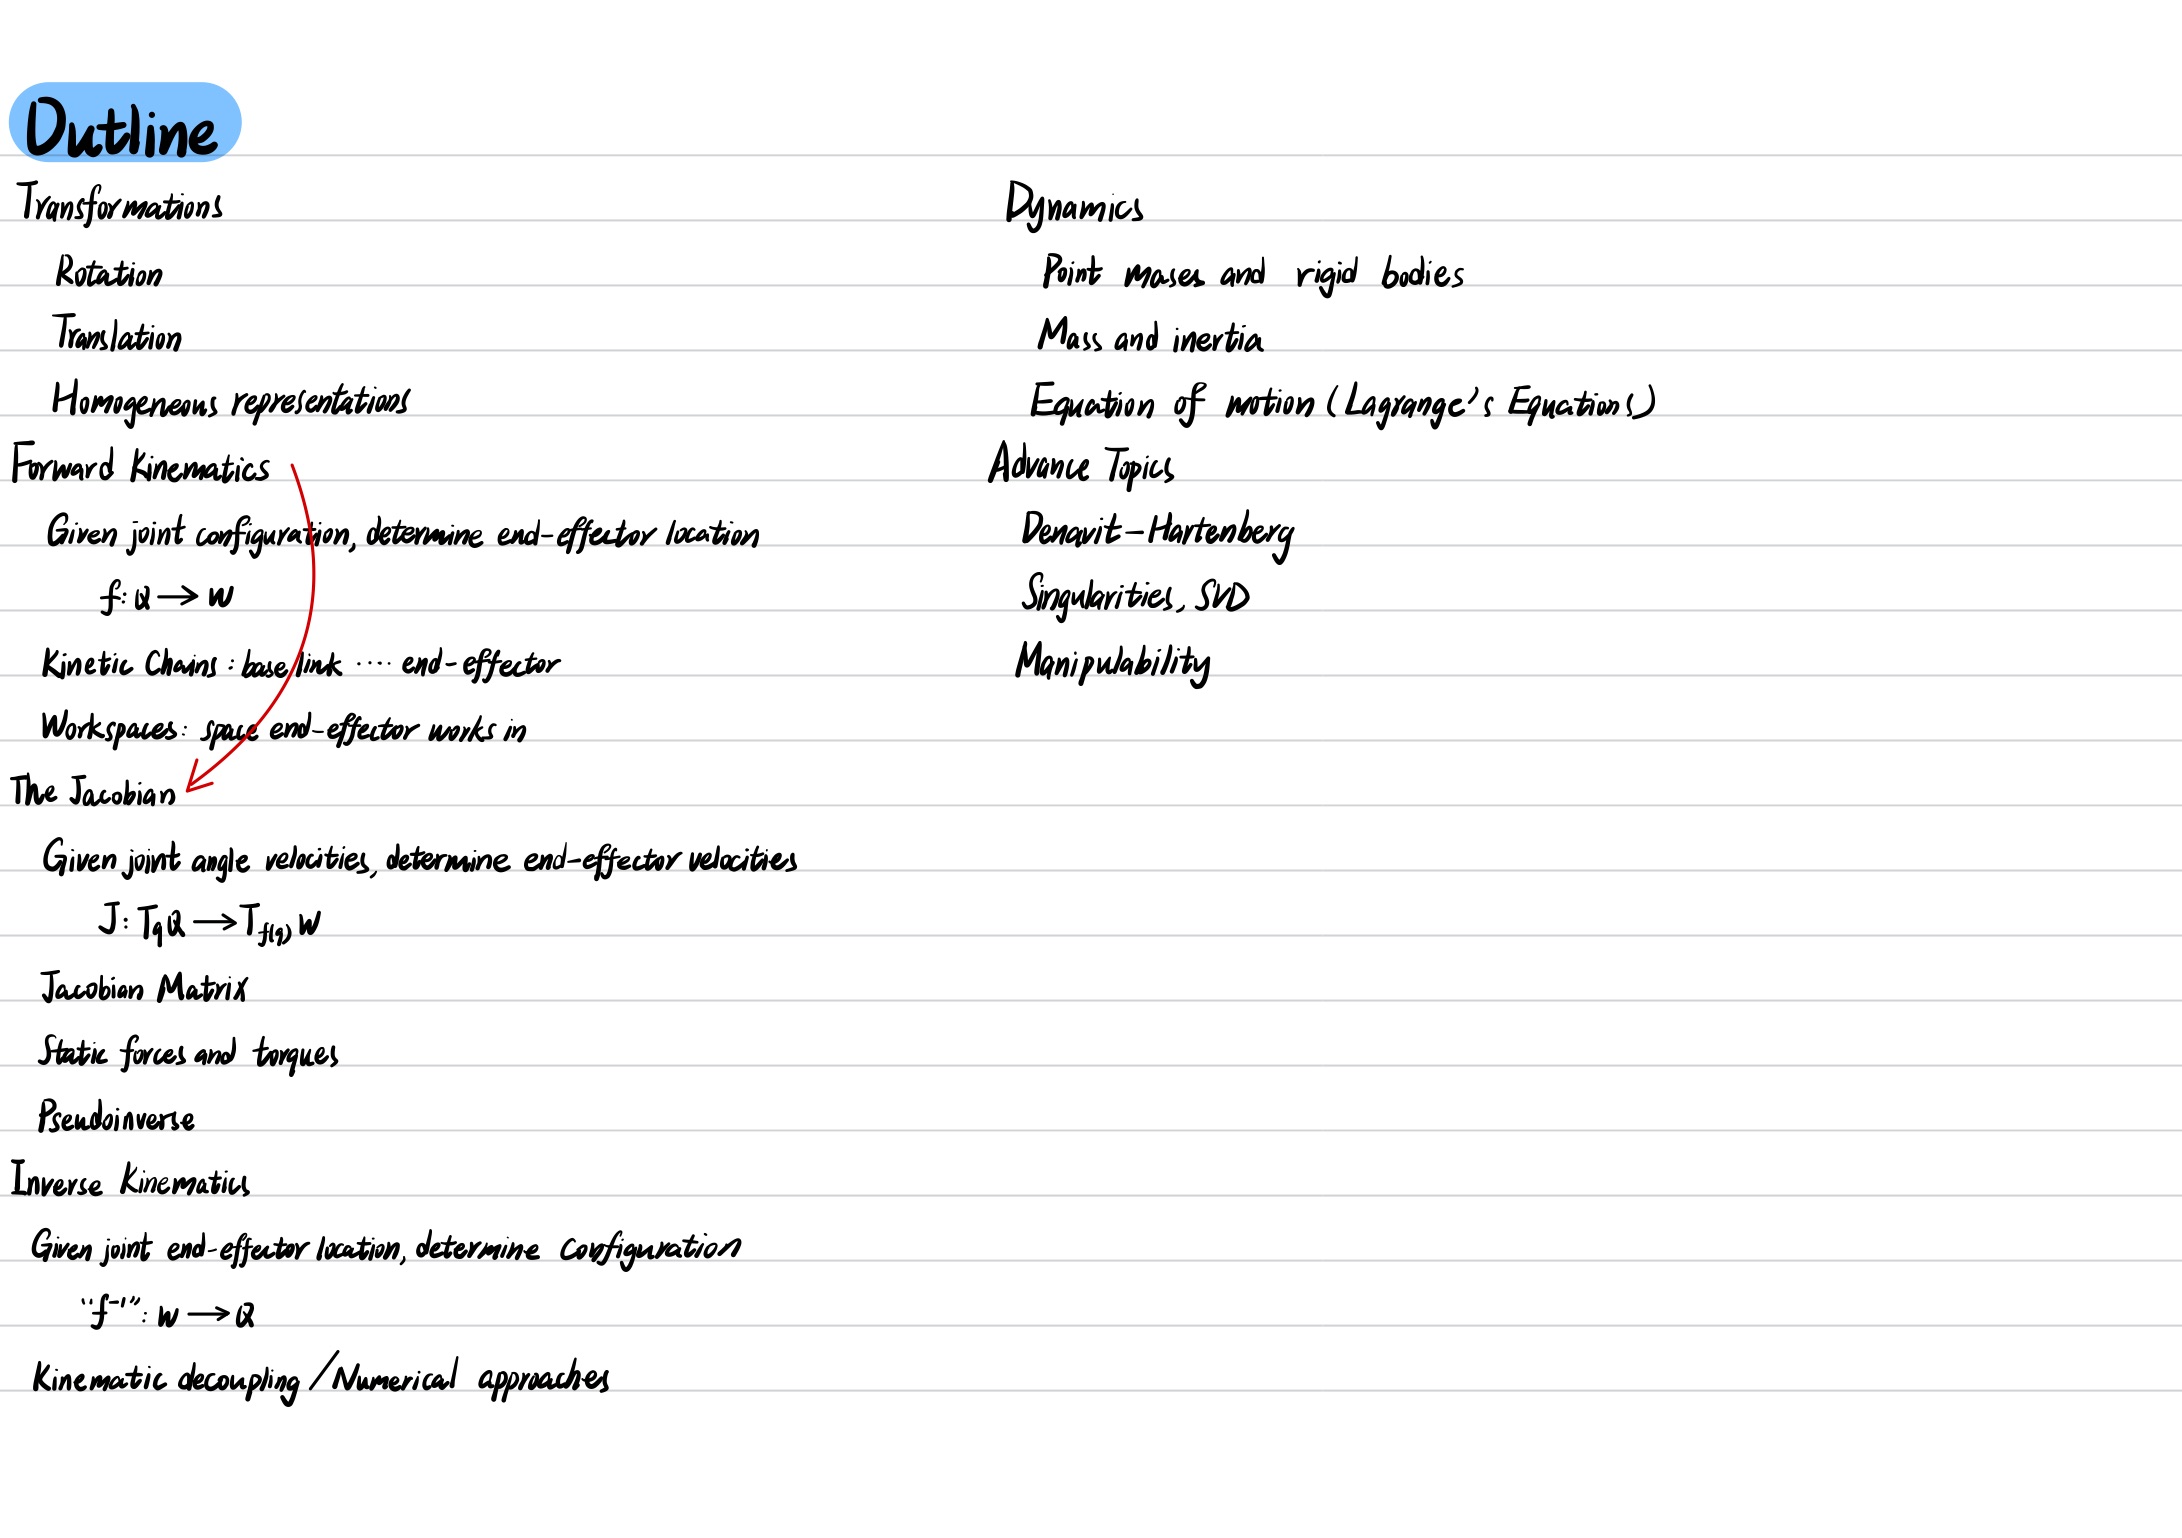 Outline
Transformations
Rotation
Translation
Homogeneous representations
Forward Kinematics
Given joint configuration, determine end-effector location
f: Q → W
Kinetic Chains: base link ···· end-effector
Workspaces: space end-effector works in
The Jacobian
Given joint angle velocities, determine end-effector velocities
J: T_q Q → T_f(q) W
Jacobian Matrix
Static forces and torques
Pseudoinverse
Inverse Kinematics
Given joint end-effector location, determine configuration
"f⁻¹": W → Q
Kinematic decoupling / Numerical approaches
Dynamics
Point mases and rigid bodies
Mass and inertia
Equation of motion (Lagrange's Equations)
Advance Topics
Denavit-Hartenberg
Singularities, SVD
Manipulability